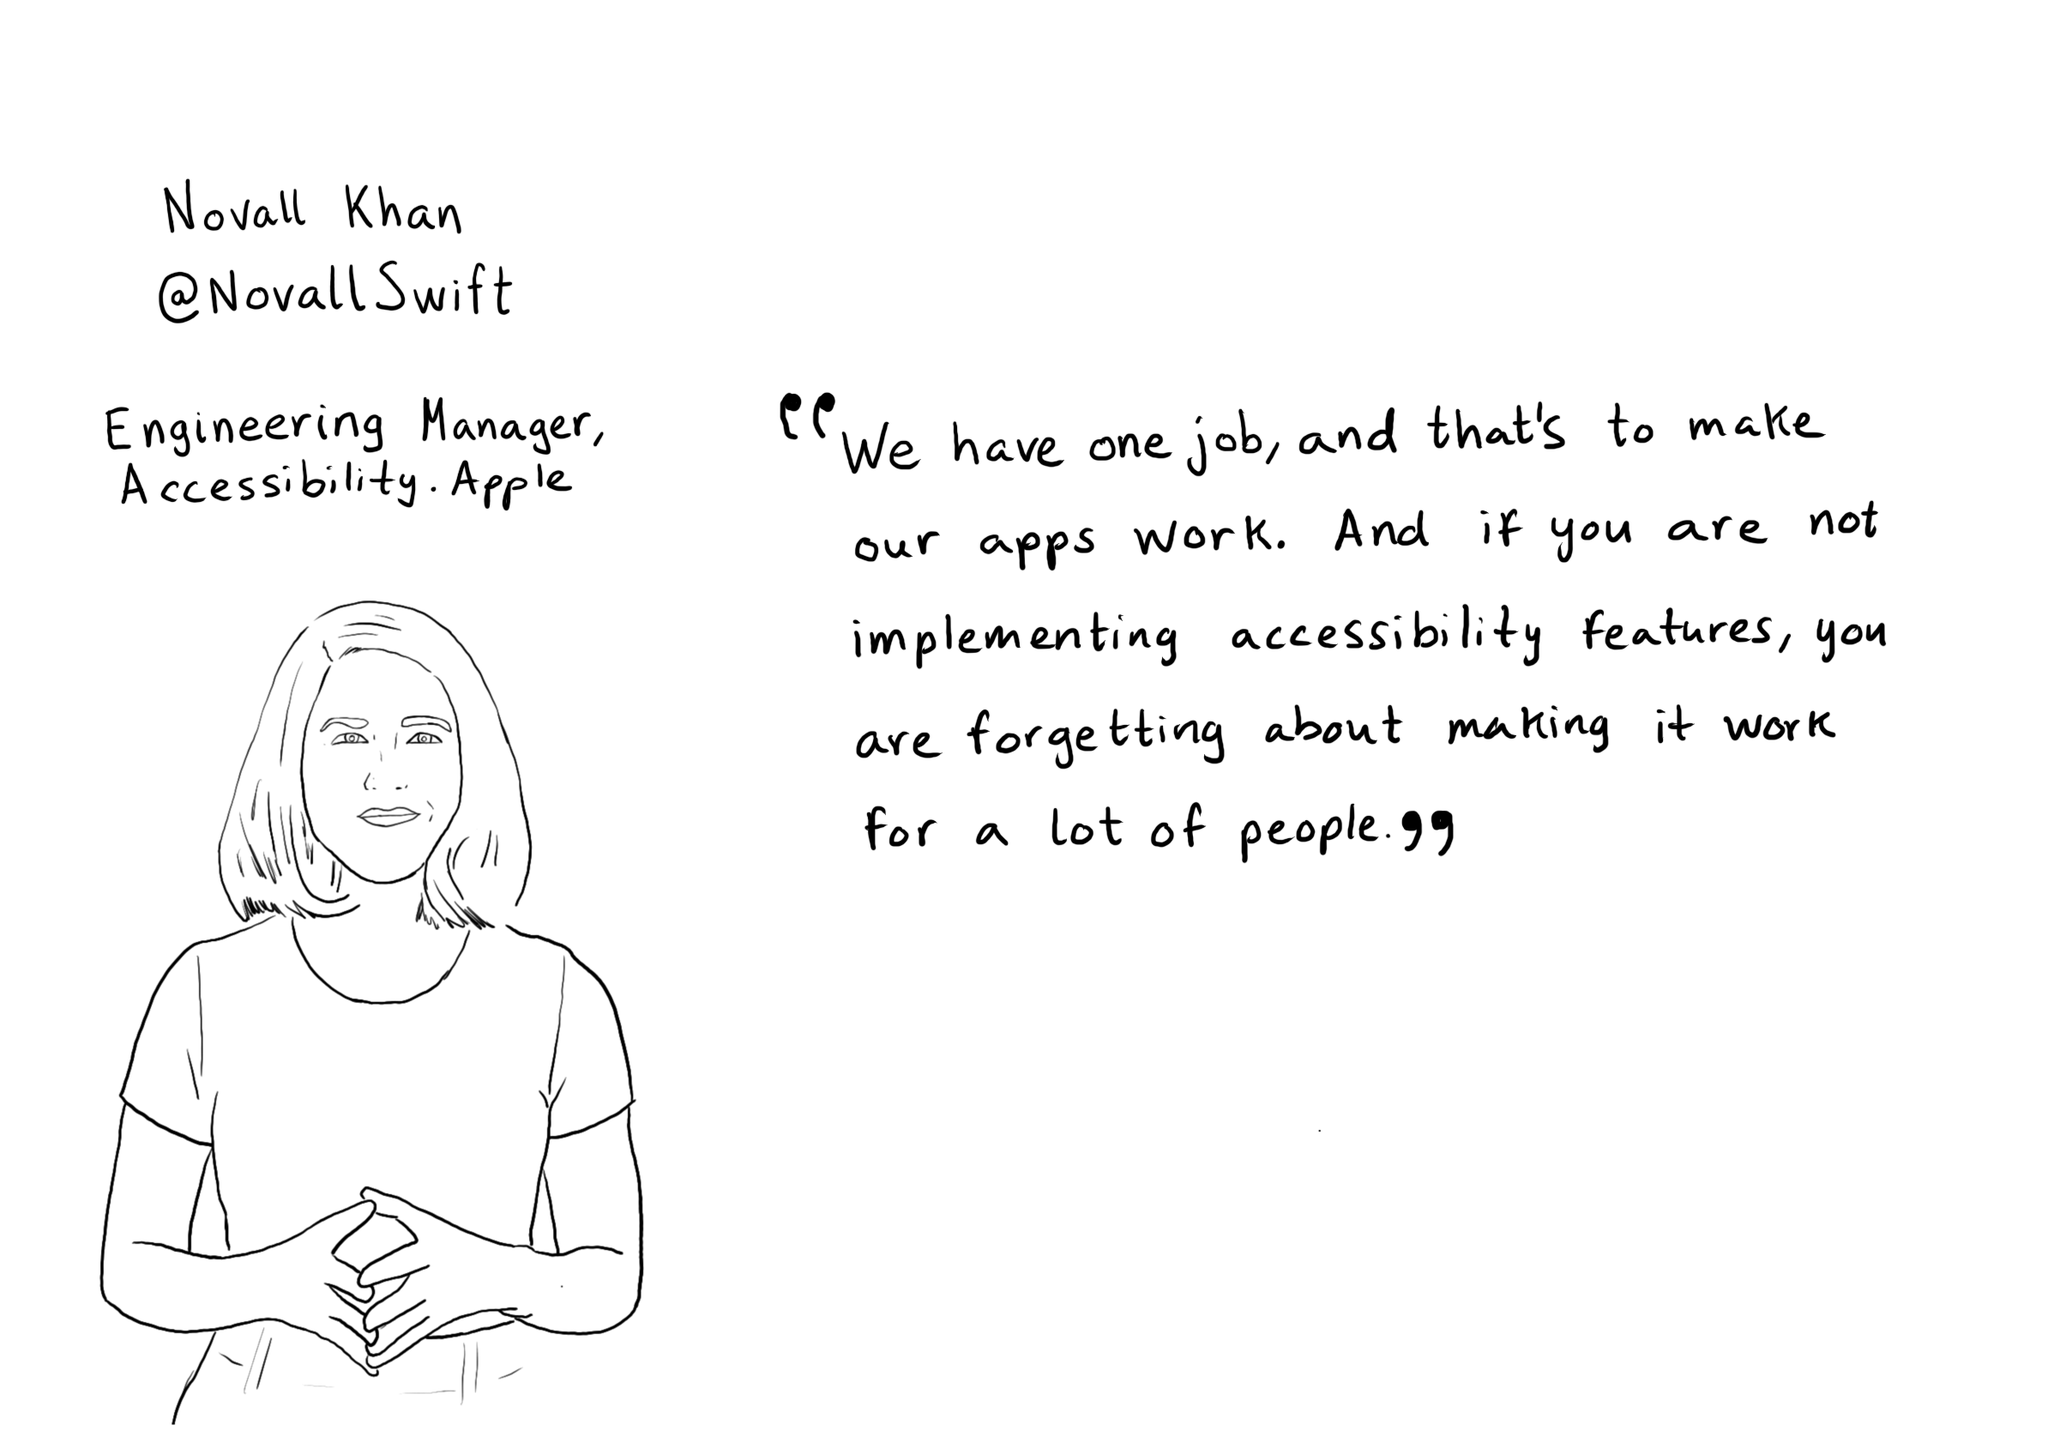 Novall Khan
@NovallSwift
Engineering Manager,
Accessibility. Apple
“We have one job, and that's to make
our apps work. And if you are not
implementing accessibility features, you
are forgetting about making it work
for a lot of people.”